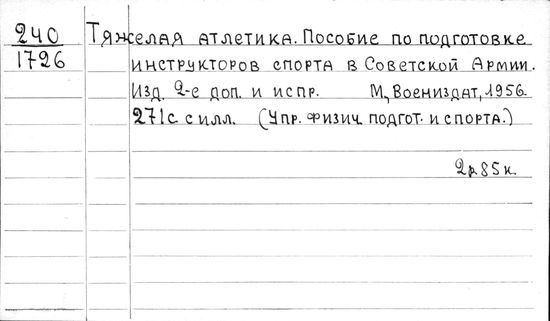 240
1726
Тяжелая атлетика. Пособие по подготовке
инструкторов спорта в Советской Армии.
Изд. 2-е доп. и испр. М., Воениздат, 1956.
271 с. с илл. (Упр. физич. подгот. и спорта.)
2р.85к.